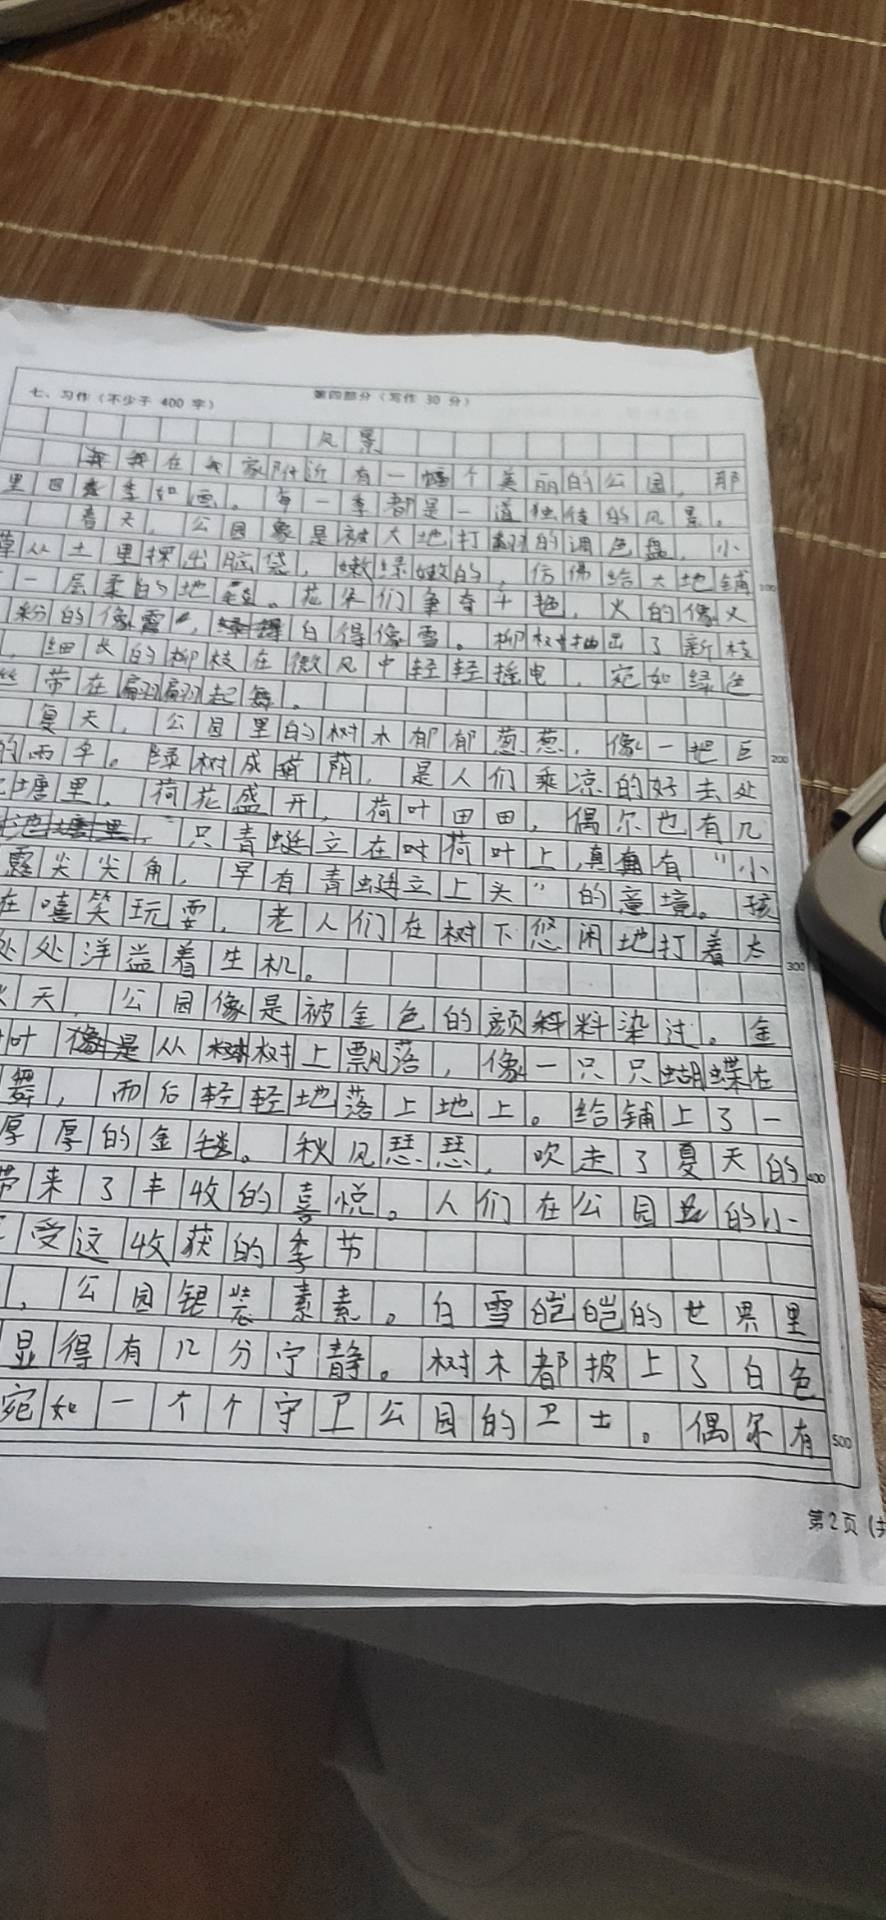 七、习作（不少于 400 字） 第四部分（写作 30 分）
风景
在家附近有一个美丽的公园，那
里四季如画。每一季都是一道独特的风景。
春天，公园象是被大地打翻的调色盘，小
草从土里探出脑袋，嫩绿嫩的，仿佛给大地铺
一层柔的地毯。花朵们争奇斗艳，火的像火
粉的像霞，白得像雪。柳树抽出了新枝
，细长的柳枝在微风中轻轻摇电，宛如绿色
丝带在翩翩起舞。
夏天，公园里的树木郁郁葱葱，像一把巨
的雨伞。绿树成荫，是人们乘凉的好去处
塘里，荷花盛开，荷叶田田，偶尔也有几
只青蜓立在荷叶上，真有“小
露尖尖角，早有青蜓立上头”的意境。孩
在嘻笑玩耍，老人们在树下悠闲地打着太
处处洋溢着生机。
天，公园像是被金色的颜料染过。金
叶从树上飘落，像一只只蝴蝶在
舞，而后轻轻地落上地上。给铺上了一
厚厚的金毯。秋风瑟瑟，吹走了夏天的
带来了丰收的喜悦。人们在公园的小
受这收获的季节
，公园银装素素。白雪皑皑的世界里
显得有几分宁静。树木都披上了白色
宛如一个个守卫公园的卫士。偶尔有
100
200
300
400
500
第2页（共